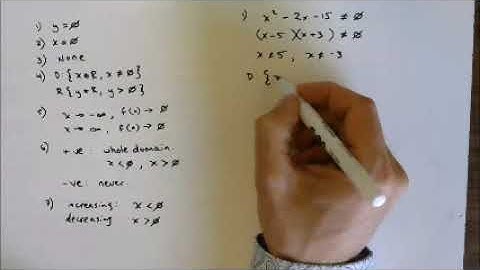 1) y = Ø
2) x = Ø
3) None
4) D: {x ∈ R, x ≠ Ø}
R: {y ∈ R, y > Ø}
5) x → -∞, f(x) → Ø
x → ∞, f(x) → Ø
6) +ve: whole domain
x < Ø, x > Ø
-ve: never
7) increasing: x < Ø
decreasing x > Ø
1) x² - 2x - 15 ≠ Ø
(x - 5)(x + 3) ≠ Ø
x ≠ 5, x ≠ -3
D: {x